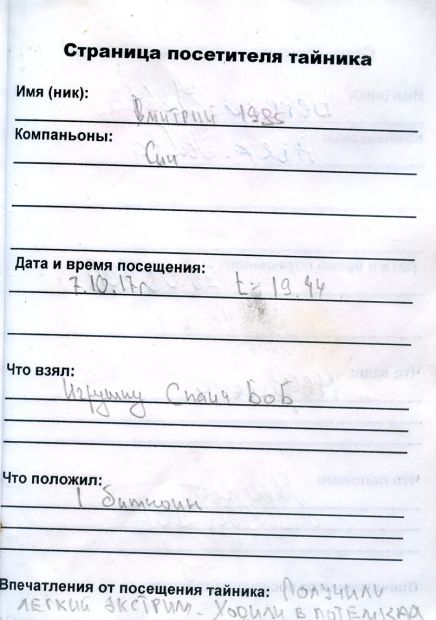 Страница посетителя тайника
Имя (ник):
Вмитрий 1985
Компаньоны:
Сын
Дата и время посещения:
7.10.17г t=19.44
Что взял:
Игрушку Спанч БоБ
Что положил:
1 биткоин
Впечатления от посещения тайника: Получили
легкий экстрим - ходили в потемках